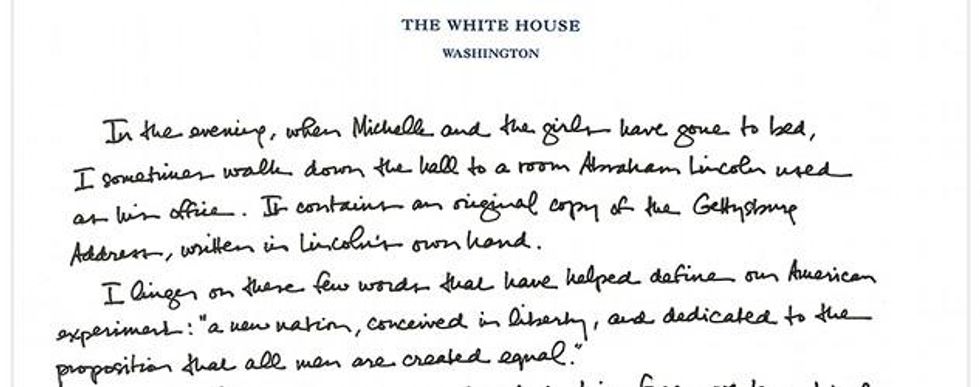 THE WHITE HOUSE
WASHINGTON
In the evening, when Michelle and the girls have gone to bed,
I sometimes walk down the hall to a room Abraham Lincoln used
as his office. It contains an original copy of the Gettysburg
Address, written in Lincoln's own hand.
I linger on these few words that have helped define our American
experiment: "a new nation, conceived in liberty, and dedicated to the
proposition that all men are created equal."